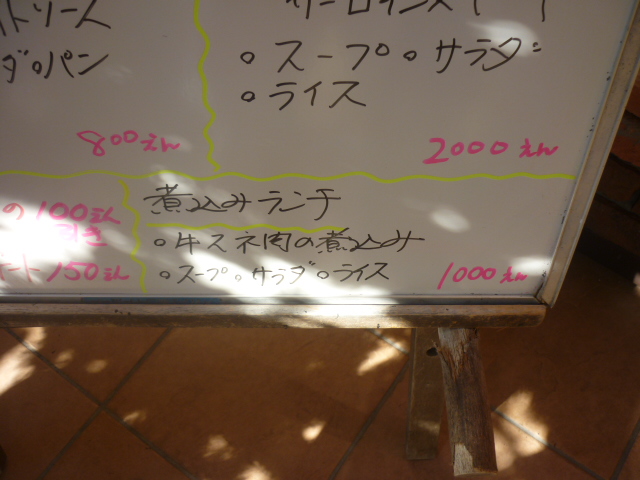 トソース
ダ。パン
800えん
サーロインステーキ
。スープ。サラダ
。ライス
2000えん
の100えん
引き
ート150えん
煮込みランチ
。牛スネ肉の煮込み
。スープ。サラダ。ライス
1000えん